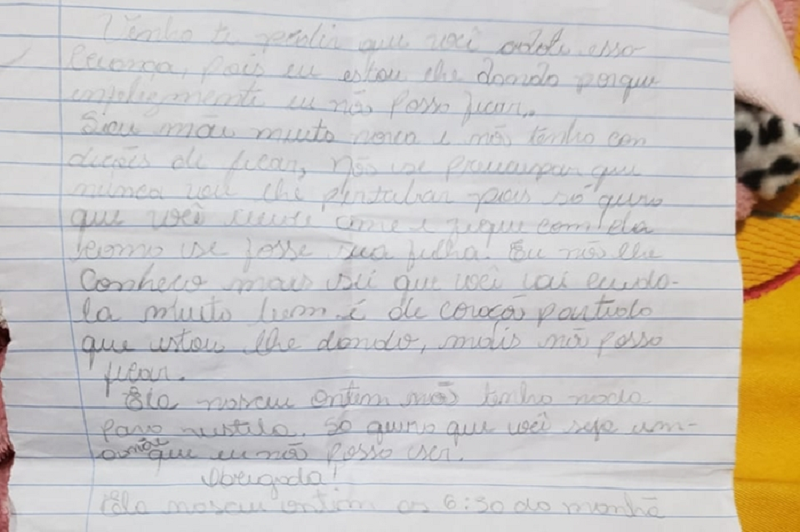 Venho te pedir que você adote essa
criança, pois eu estou lhe dando porque
infelizmente eu não posso ficar..
Sou mãe muito nova e não tenho con
dições de ficar, não se preucupar que
nunca vou lhe pertubar pois só quero
que você cuide ame e fique com ela
como se fosse sua filha. Eu não lhe
conheço mais sei que você vai cuida-
la muito bem. é de coração partido
que estou lhe dando, mais não posso
ficar.
Ela nasceu ontem não tenho nada
para vestila. Só quero que você seja uma
mãe que eu não posso ser.
Obrigada!
Ela nasceu ontem as 6:30 da manhã